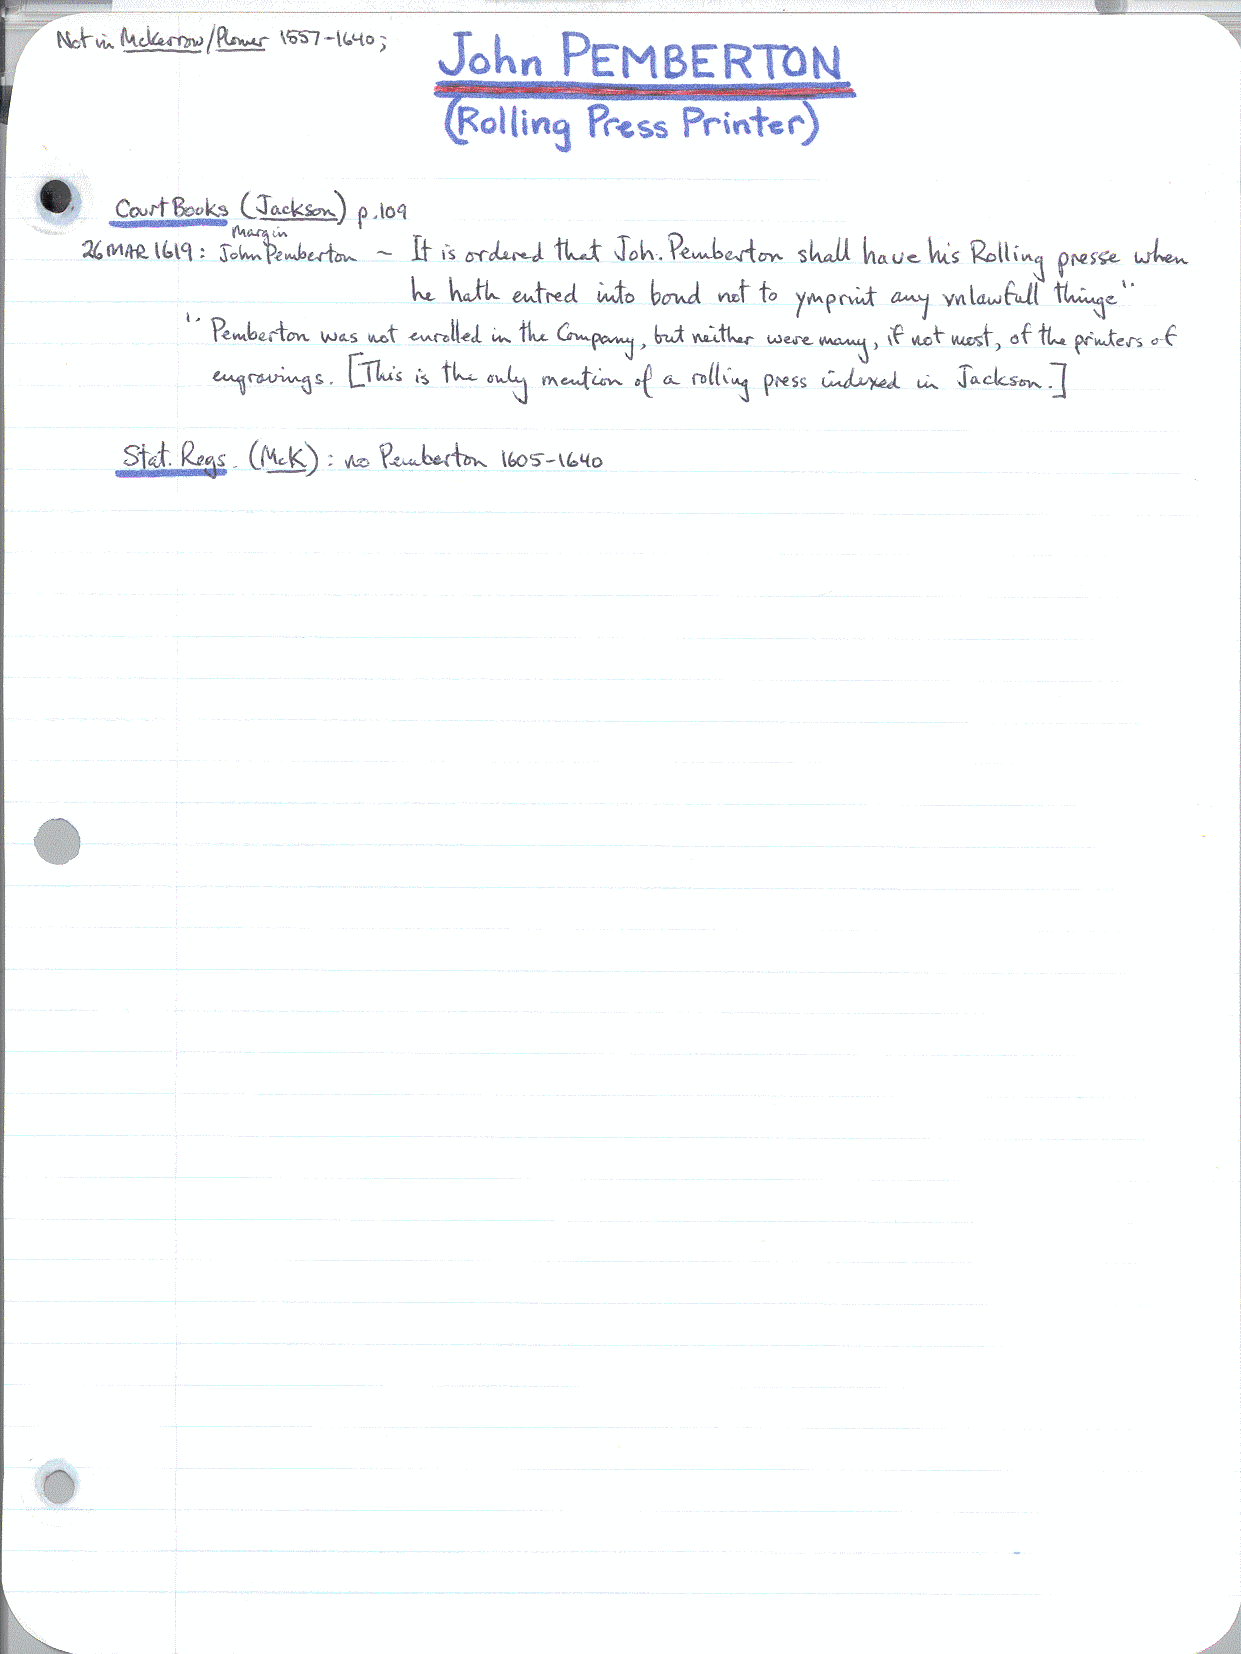 Not in McKerrow/Plomer 1557-1640;
John PEMBERTON
(Rolling Press Printer)
Court Books (Jackson) p.109
Margin
26 MAR 1619: John Pemberton ~ It is ordered that Joh. Pemberton shall have his Rolling presse when
he hath entred into bond not to ymprint any vnlawfull thinge"
" Pemberton was not enrolled in the Company, but neither were many, if not most, of the printers of
engravings. [This is the only mention of a rolling press indexed in Jackson.]
Stat. Regs. (McK): no Pemberton 1605-1640